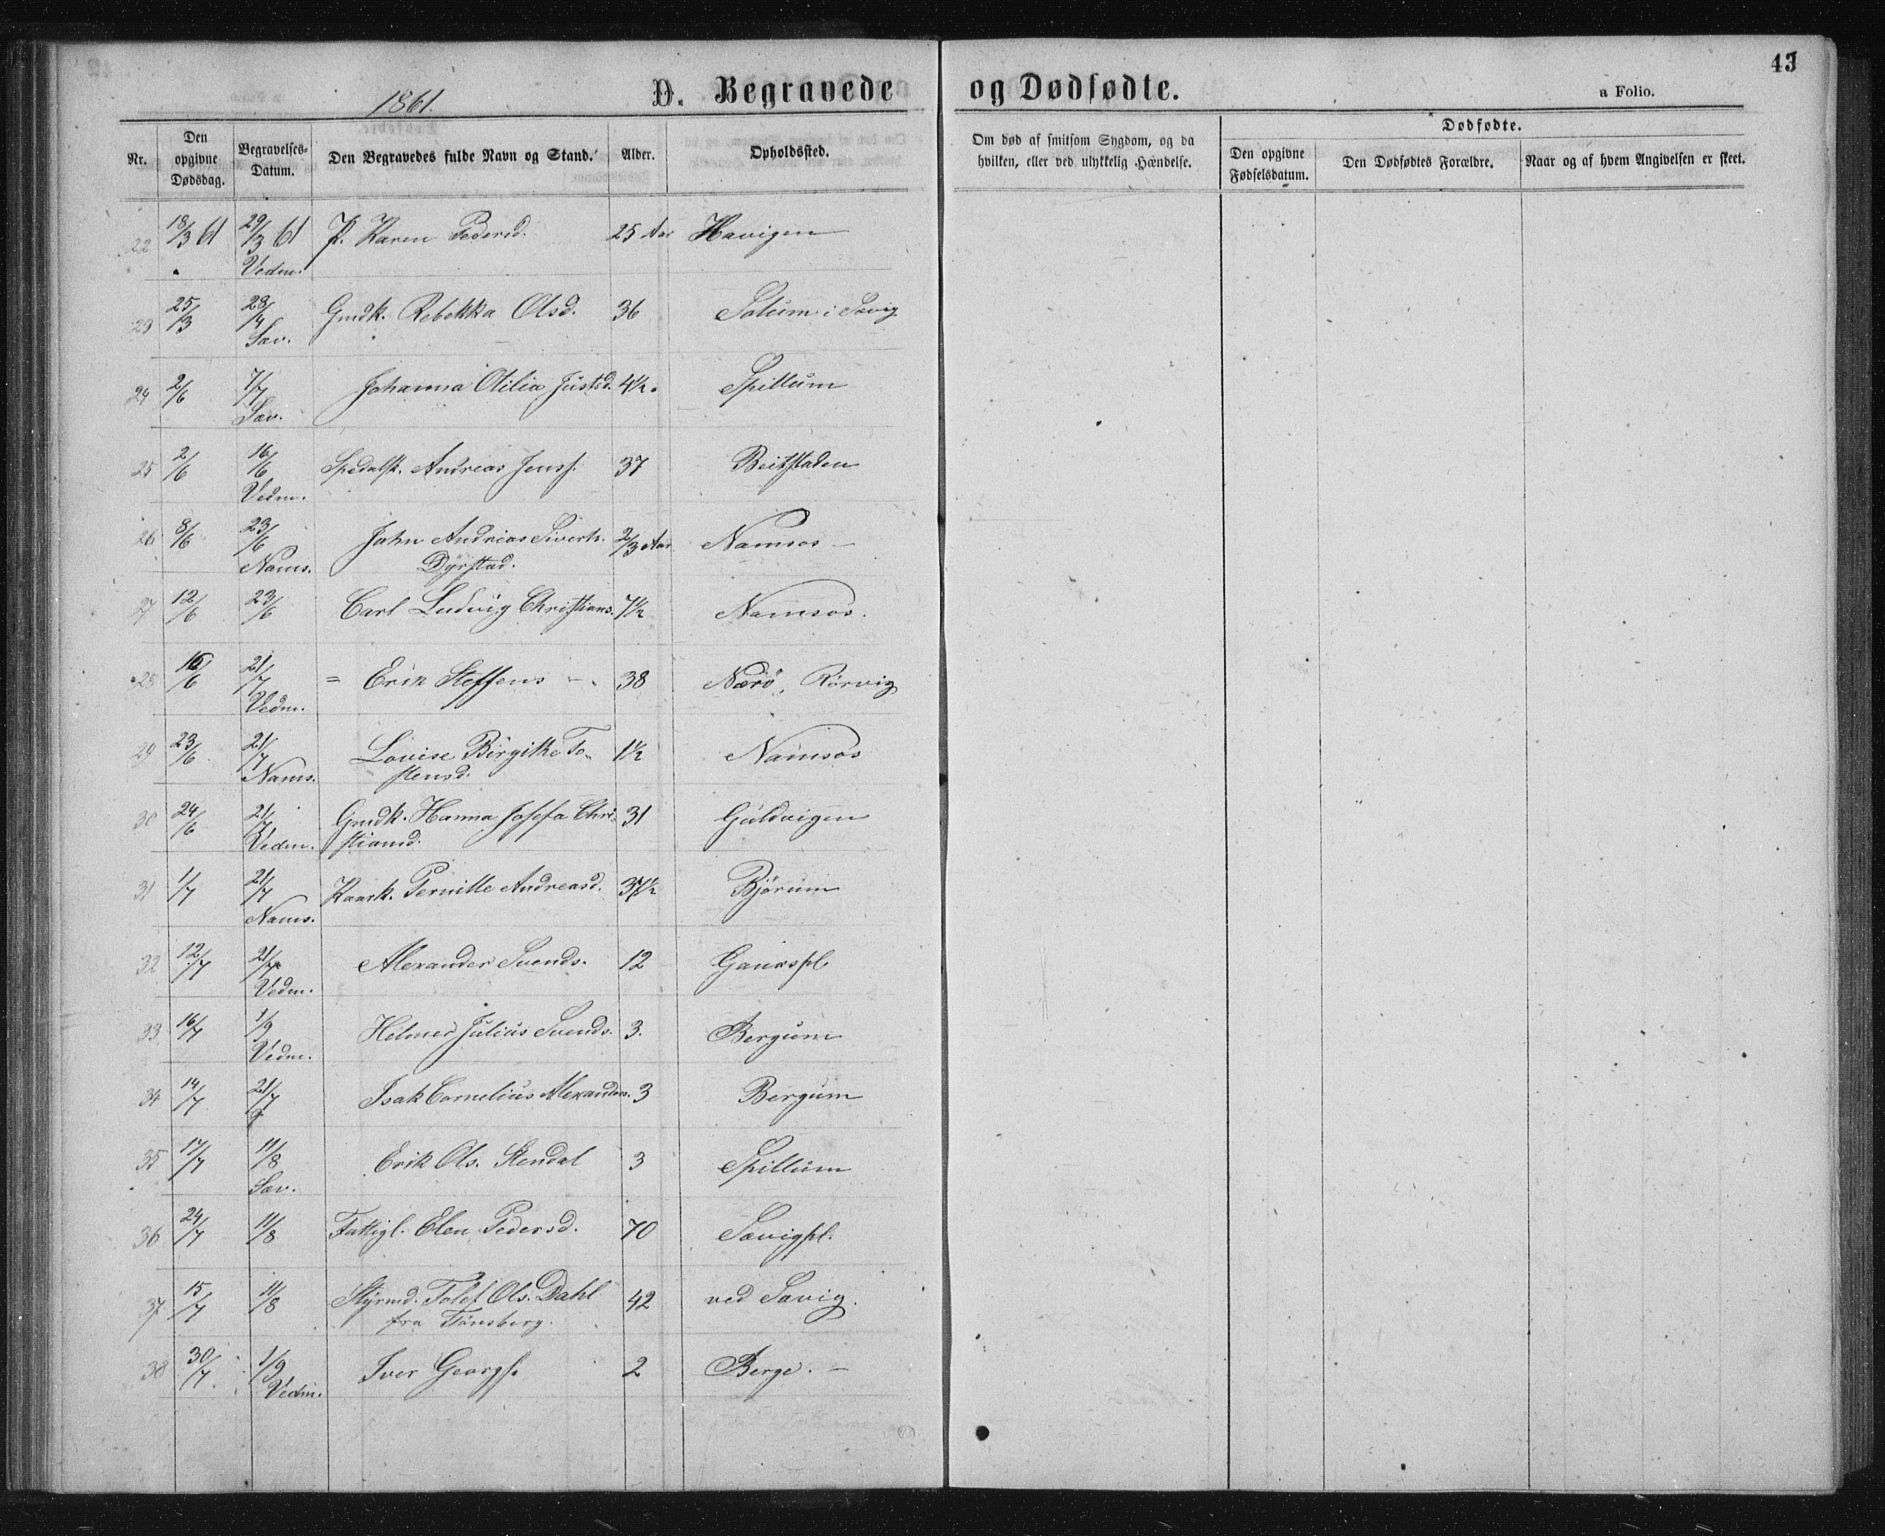 43
1861.
D. Begravede og Dødfødte.
a Folio.
Nr. Den opgivne Dødsdag. Begravelses-Datum. Den Begravedes fulde Navn og Stand. Alder. Opholdssted. Om død af smitsom Sygdom, og da hvilken, eller ved ulykkelig Hændelse. Dødfødte. Den opgivne Fødselsdatum. Den Dødfødtes Forældre. Naar og af hvem Angivelsen er skeet.
22 18/3 61 29/3 61 P. Karen Pedersd. 25 Aar Havigen
Vedm.
23 25/3 28/4 Gmdk. Rebekka Olsd. 36 Solum i Savig
Sav.
24 2/6 7/7 Johanna Otilia Justsd. 4½ Spillum
Sav.
25 2/6 16/6 Spedalsk. Andreas Jenss. 37 Beitstaden
Vedm.
26 8/6 23/6 John Andrias Siverts. 2/3 Aar Namsos –
Nams. Dyrstad.
27 12/6 23/6 Carl Ludvig Christians. 7½ Namsos.
28 16/6 21/7 = Erik Steffens – 38 Nærö, Rörvig
Vedm.
29 23/6 21/7 Lovise Birgitke To- 1½ Namsos
Nams. stensd.
30 24/6 21/7 Gmdk. Hanna Josefa Chri- 31 Guldvigen
Vedm. stiansd.
31 1/7 21/7 Kaark. Pernille Andreasd. 37½ Bjørum
Nams.
32 12/7 21/7 Alexander Svends. 12
Vedm.
33 16/7 1/9 Helmer Julius Svends. 3. Bergum
Vedm.
34 14/7 21/7 Isak Cornelius Alexanders. 3 Bergum
35 17/7 11/8 Erik Ols. Stendal 3 Spillum
Sav.
36 24/7 11/8 Fattigl. Elen Pedersd. 70 Savigpl.
37 15/7 11/8 Styrmd. Ols. Dahl 42 ved Savig.
fra Tönsberg.
38 30/7 1/9 Iver Georgs. 2 Berge. –
Vedm.